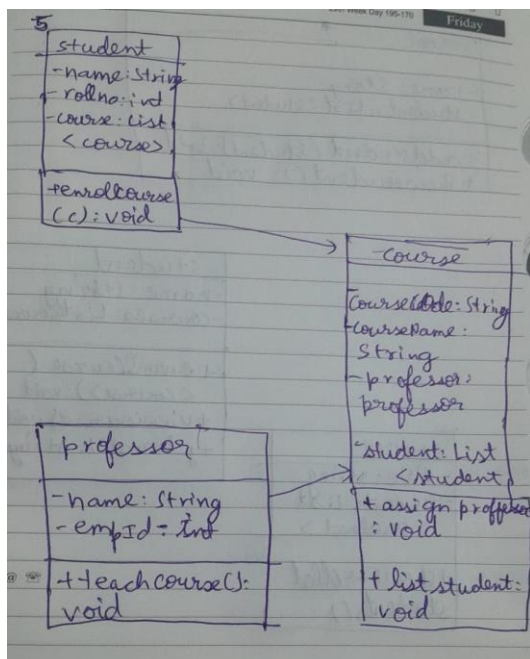 Week Day 195-170
Friday
5
student
-name: String
- rollno: int
-course: List
<course>
+enrollcourse
(c): void
course
CourseCode: String
-courseName:
String
- professor:
professor
-student: List
<student
+ assign proffessor
: void
+ list student:
void
professor
-name: String
-empId= int
+teachcourse():
void